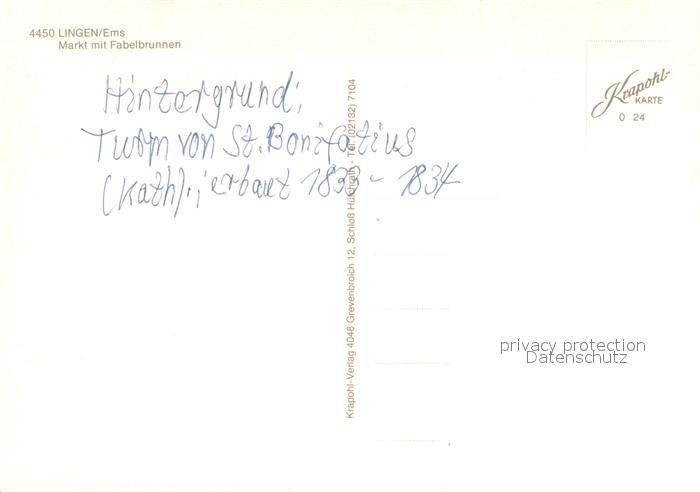 4450 LINGEN/Ems
Markt mit Fabelbrunnen
Krapohl-
KARTE
0 24
Hintergrund:
Turm von St. Bonifatius
(Kath).; erbaut 1833 - 1834
Krapohl-Verlag 4048 Grevenbroich 12, Schloß Hülchrath - Tel. (02182) 7104
privacy protection
Datenschutz